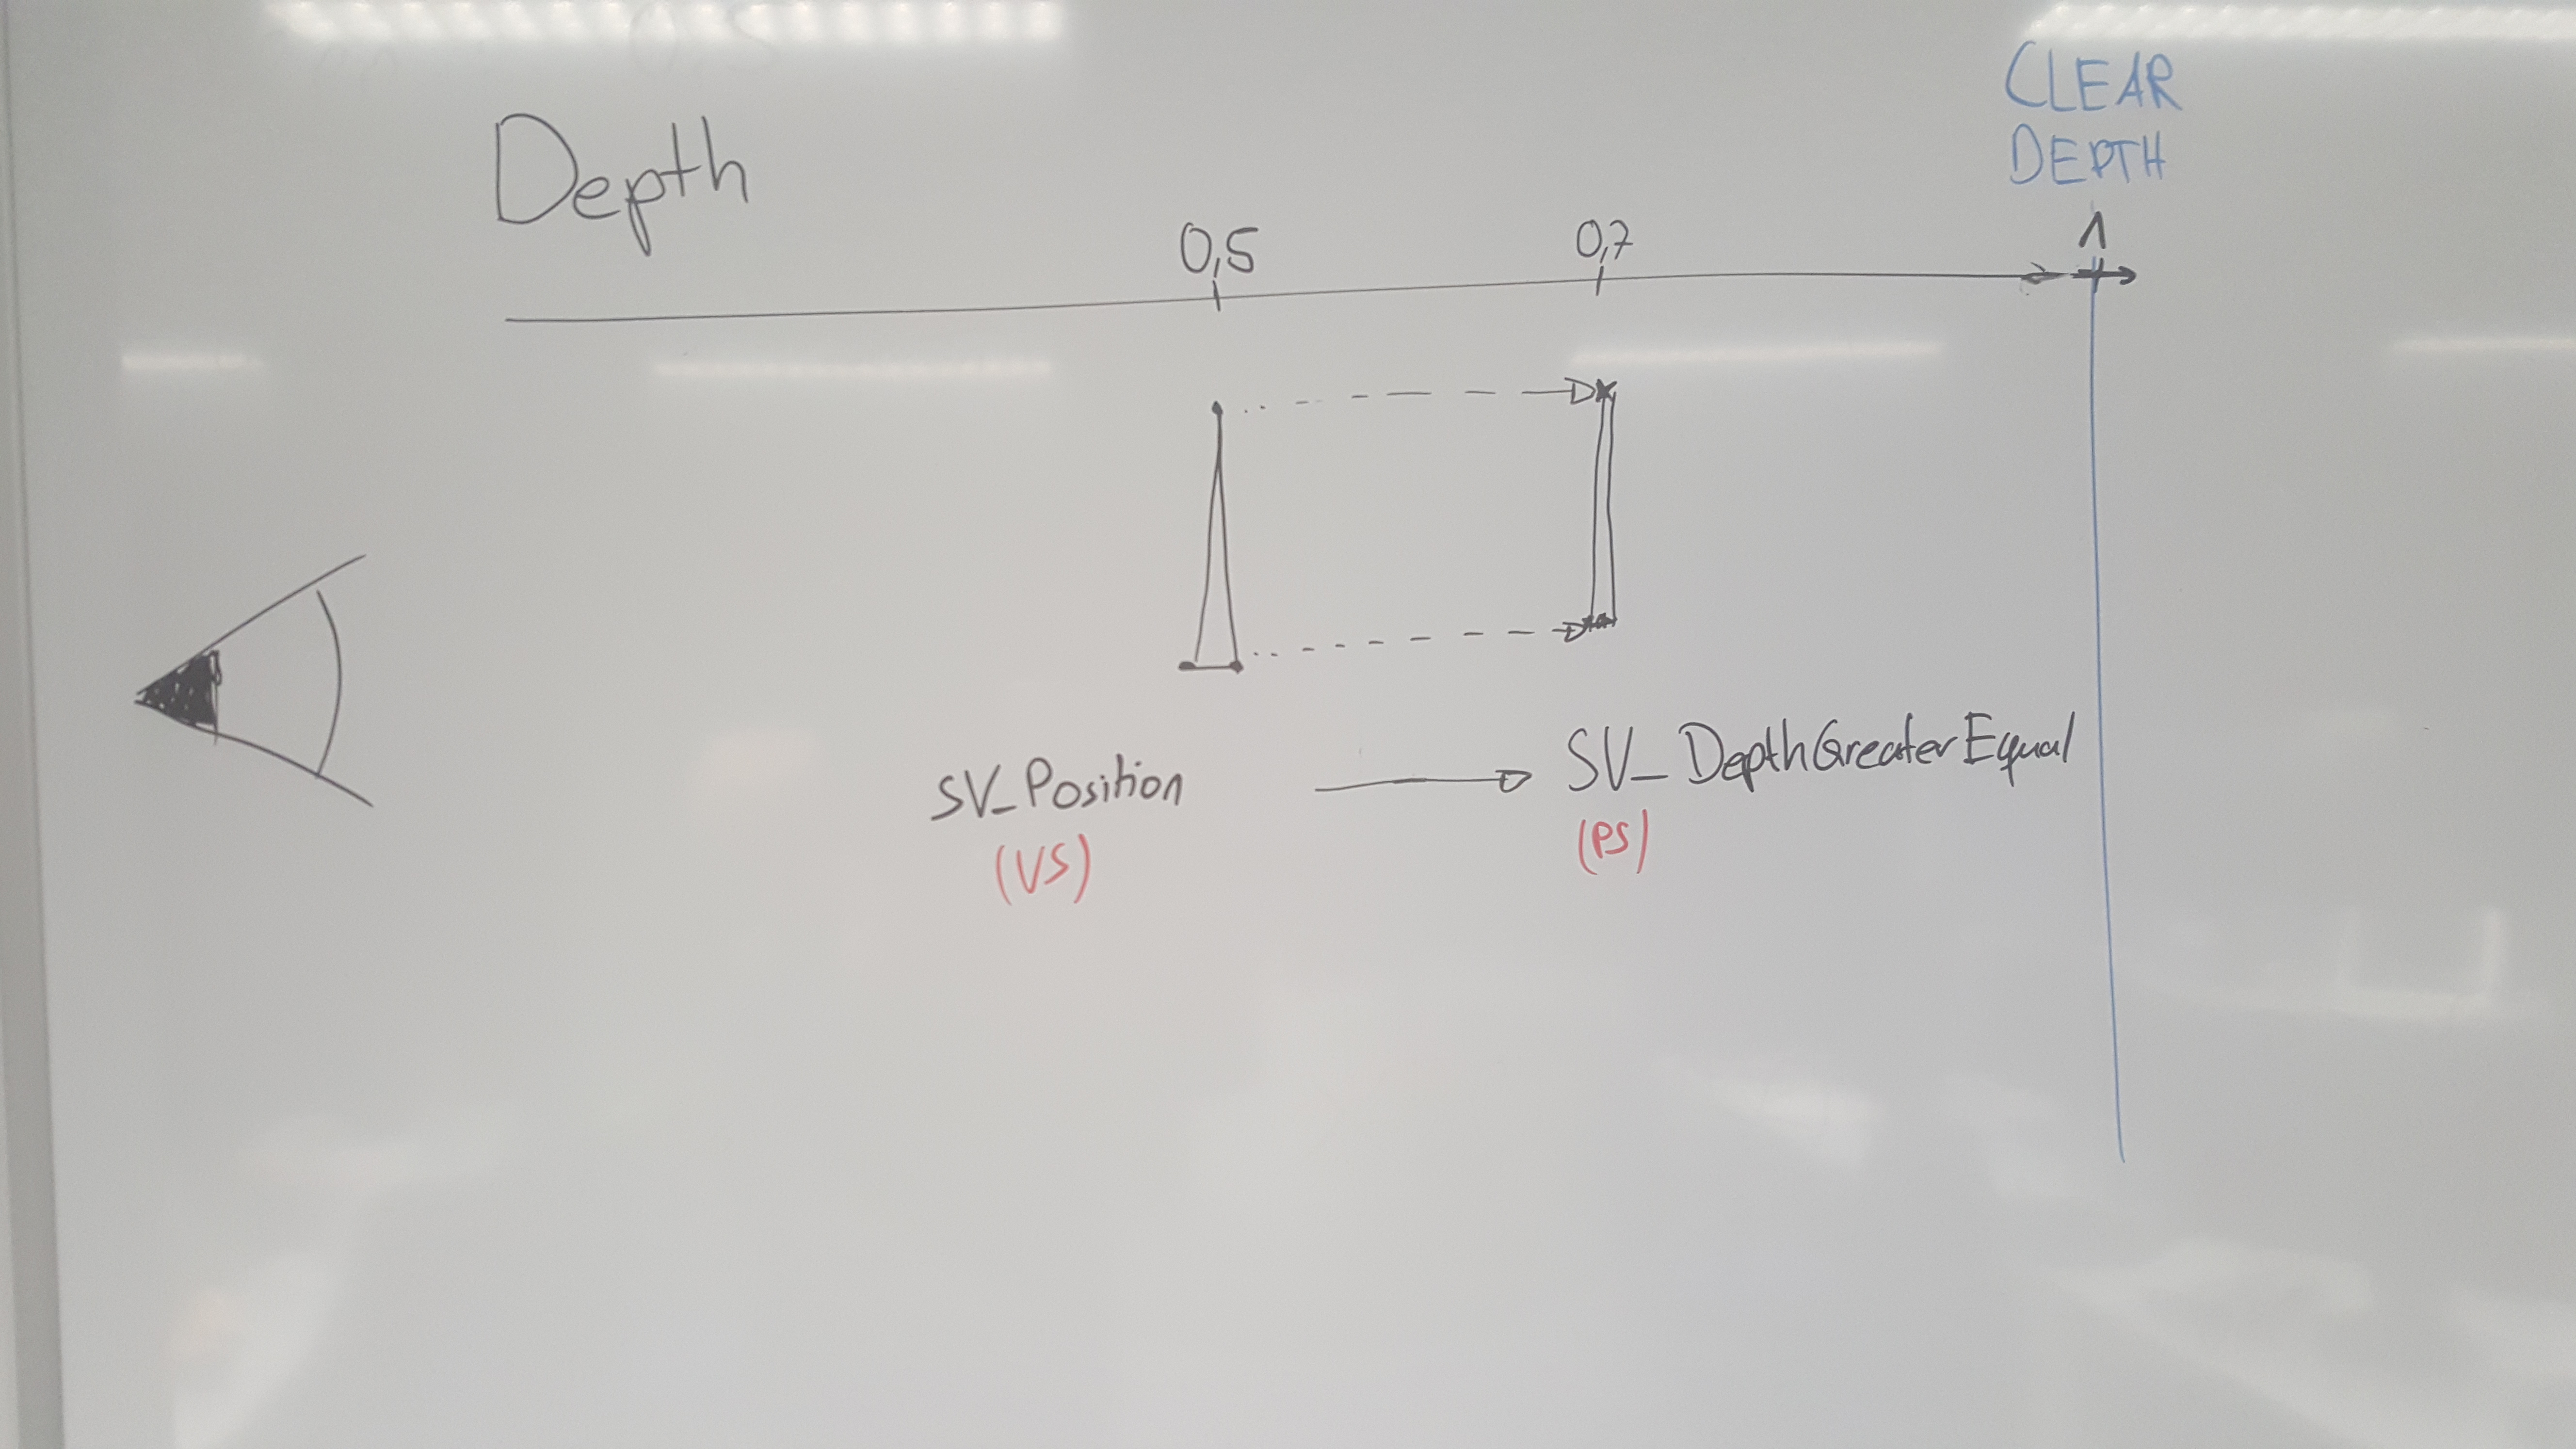 CLEAR
DEPTH
Depth
0,5
0,7
1
SV_Position
SV_DepthGreaterEqual
(VS)
(PS)